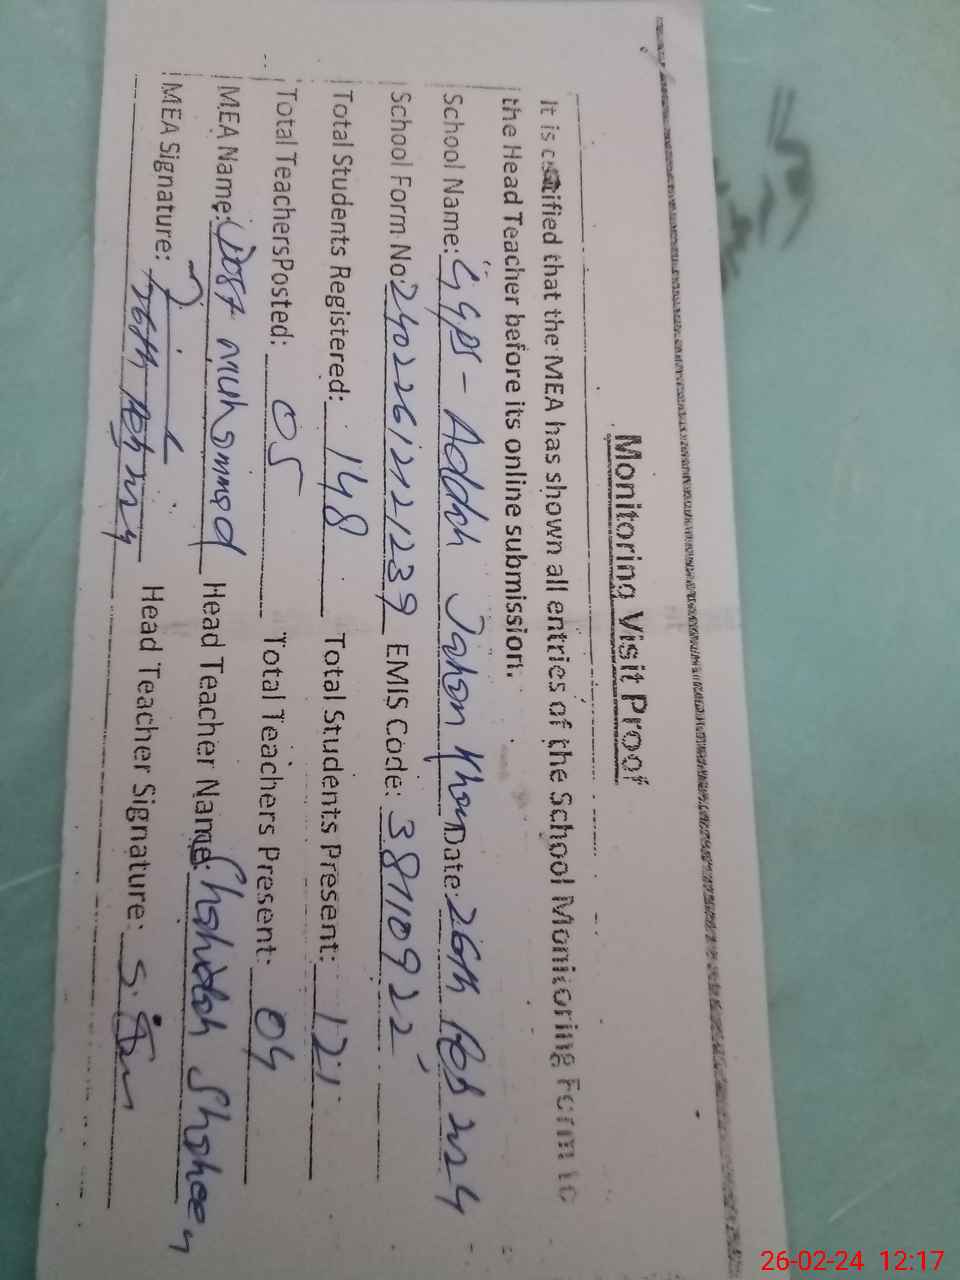 Monitoring Visit Proof
It is certified that the MEA has shown all entries of the School Monitoring Form to
the Head Teacher before its online submission.
School Name: GGPS - Addah Jahan Khan Date: 26th Feb 2024
School Form No: 24022612121239 EMIS Code: 38110922
Total Students Registered: 148 Total Students Present: 121
Total Teachers Posted: 05 Total Teachers Present: 04
MEA Name: Dost Muhammad Head Teacher Name: Shaheen
MEA Signature: 26th Feb 2024 Head Teacher Signature:
26-02-24 12:17